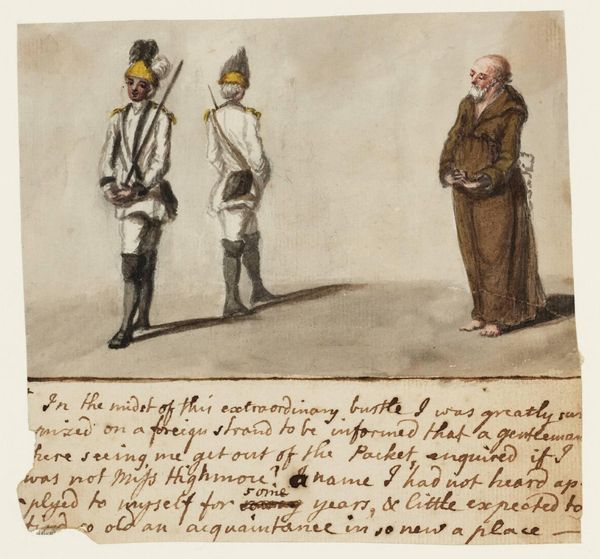 In the midst of this extraordinary bustle I was greatly sur
mized on a foreign strand to be informed that a gentleman
here seeing me get out of the Packet, enquired if I
was not Miss Highmore? A name I had not heard ap-
plyed to myself for some years, & little expected to
find so old an acquaintance in so new a place —